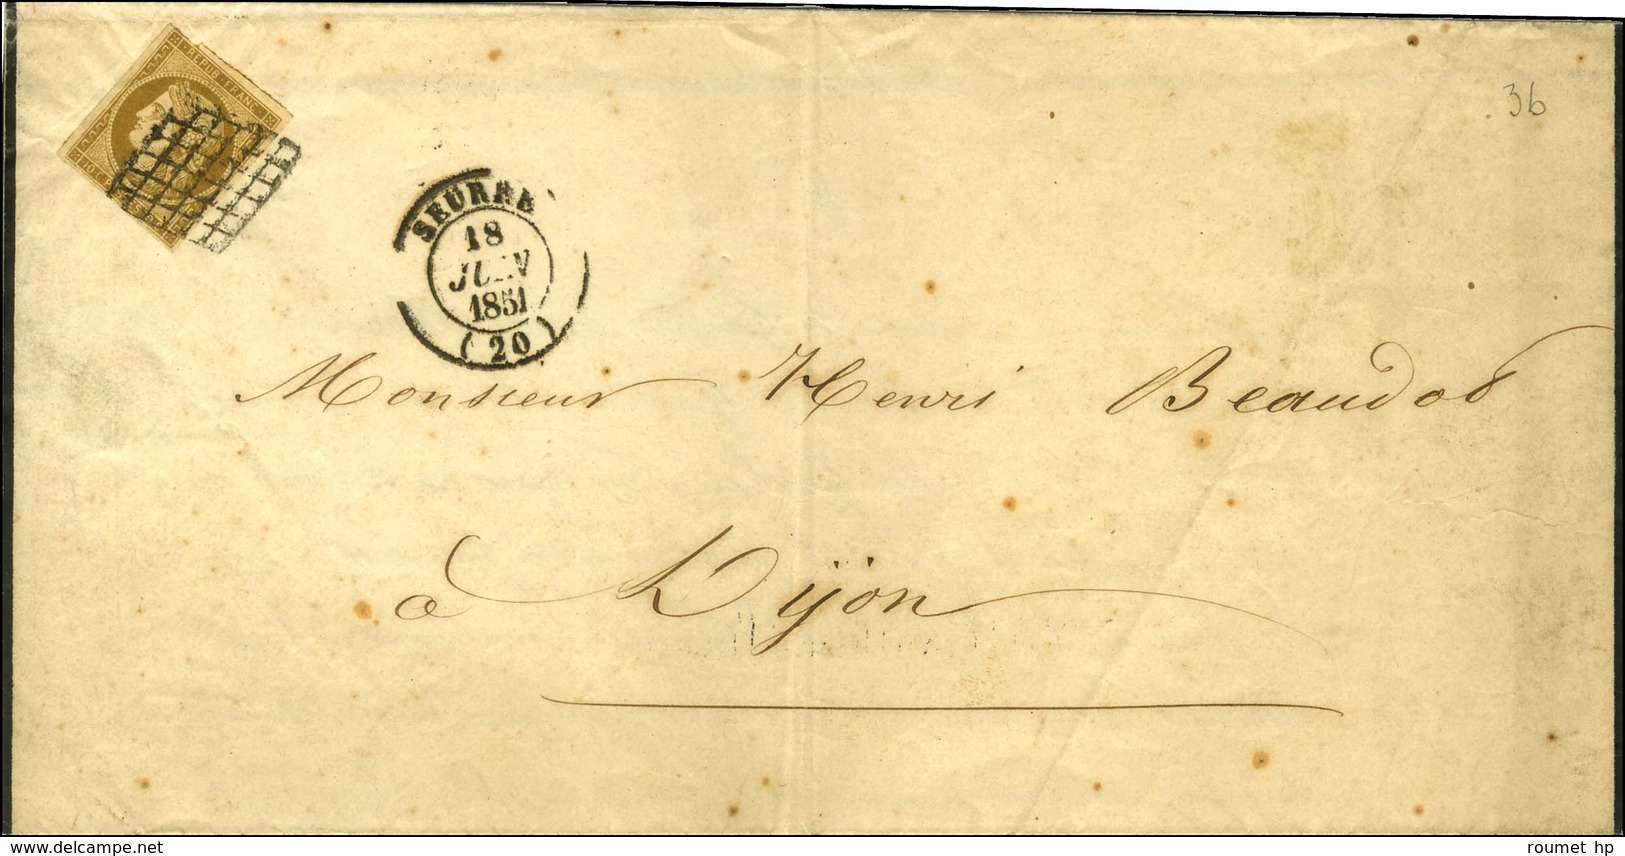 REPUB. FRANC.
10.C.
36
SEURRE
18
JUIN
1851
(20)
Monsieur Henri Beaudot
à Dijon
www.delcampe.net
roumet hp